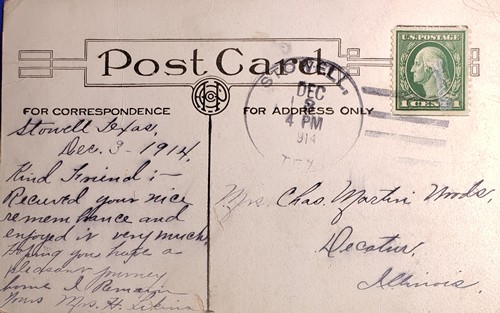 Post Card
FOR CORRESPONDENCE
FOR ADDRESS ONLY
U.S. POSTAGE
1 CENT 1
STOWELL,
DEC
4 PM
914
TEX
Stowell Texas,
Dec. 3 - 1914,
Kind Friend:-
Received your nice
remembrance and
enjoyed it very much,
hoping you have a
pleasant journey
home I Remain
Yours Mrs. H.
Mrs. Chas. Martin Woods,
Decatur,
Illinois.